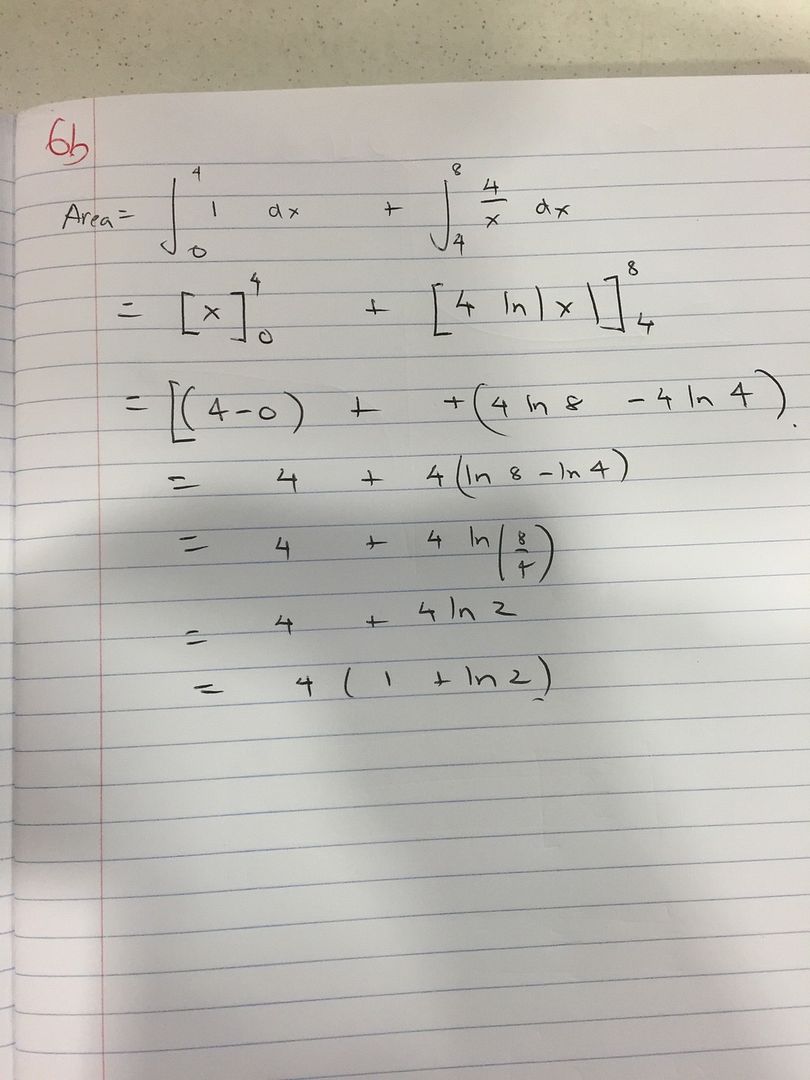 6b
Area = ∫₀⁴ 1 dx + ∫₄⁸ 4/x dx
= [x]₀⁴ + [4 ln|x|]₄⁸
= [(4-0) + +(4 ln 8 - 4 ln 4).
= 4 + 4(ln 8 - ln 4)
= 4 + 4 ln(8/4)
= 4 + 4 ln 2
= 4 (1 + ln 2)